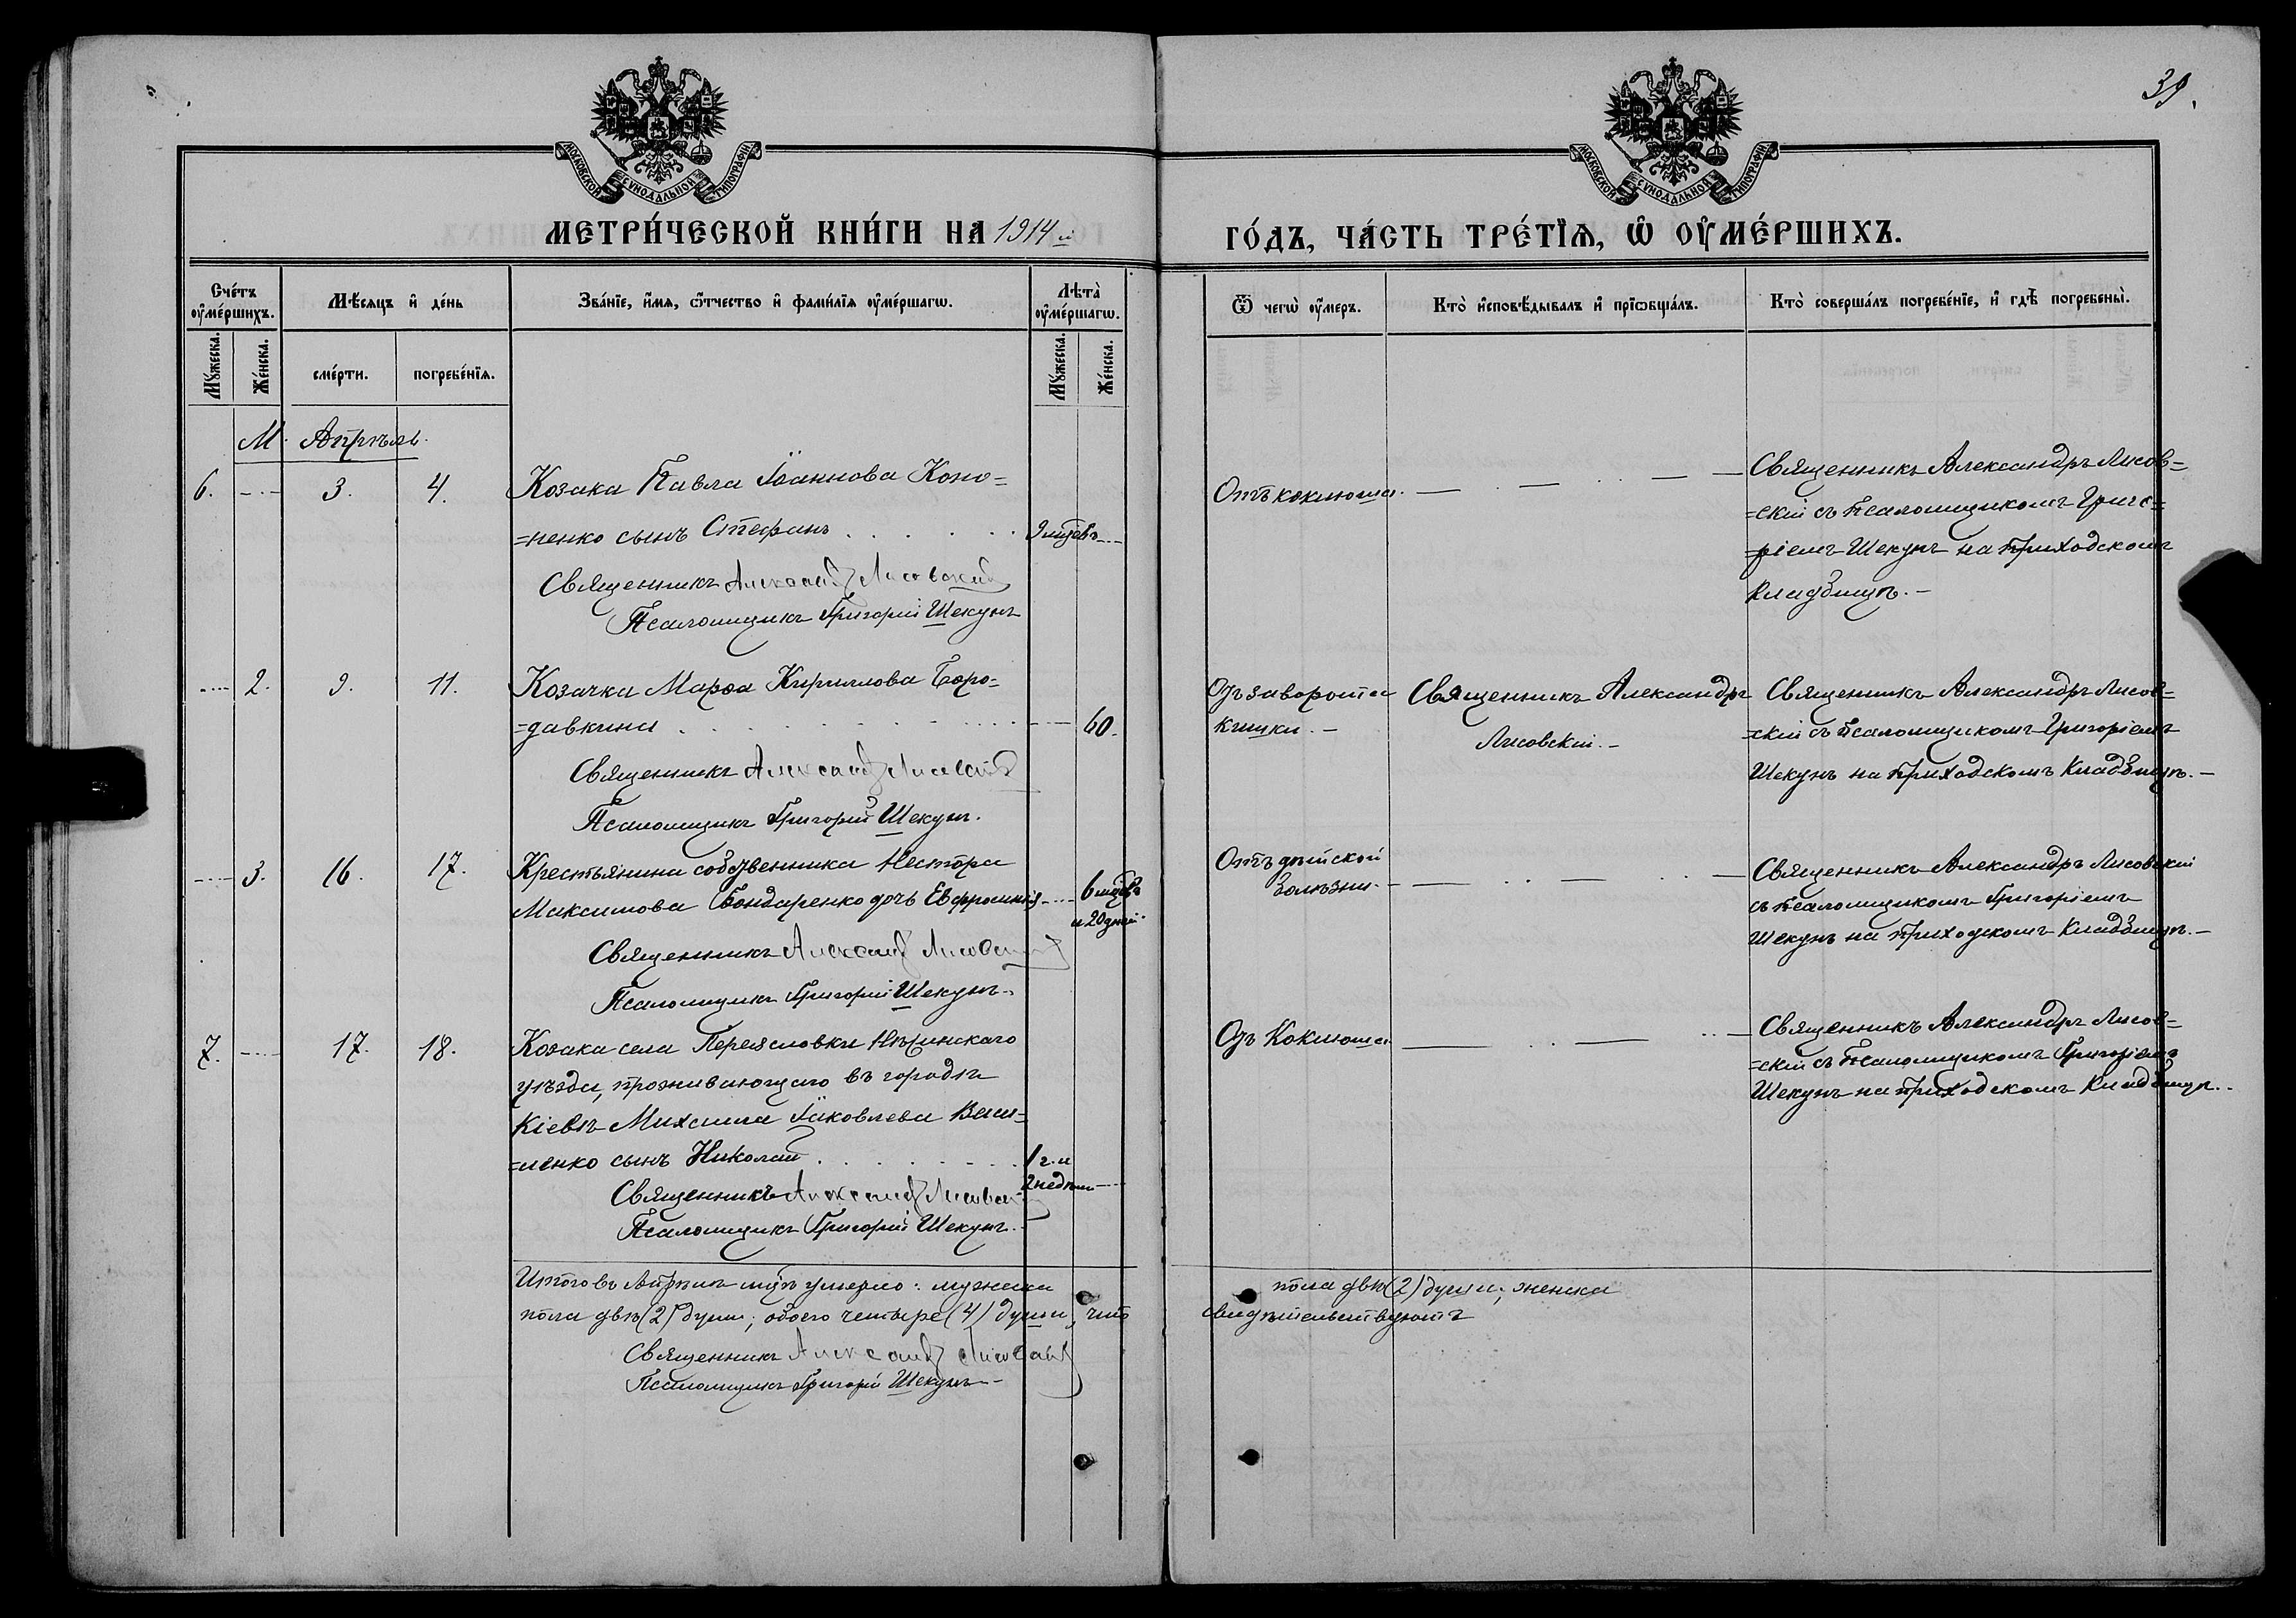 39.
МОСКОВСКОЙ СѴНОДАЛЬНОЙ ТИПОГРАФІИ
МОСКОВСКОЙ СѴНОДАЛЬНОЙ ТИПОГРАФІИ
МЕТРИ́ЧЕСКОЙ КНИ́ГИ НА 1914 й
ГО́ДЪ, ЧА́СТЬ ТРЕ́ТІѦ, Ѡ҆ ОУ҆МЕ́РШИХЪ.
Сче́тъ оу҆ме́ршихъ.
Мѣ́сяцъ и҆ де́нь
Зва́нїе, и҆́мя, ѻ҆́тчество и҆ фами́лїя оу҆ме́ршагѡ.
Лѣта̀ оу҆ме́ршагѡ.
Ѿ чегѡ̀ оу҆́меръ.
Кто̀ и҆сповѣ́дывалъ и҆ прїѡбща́лъ.
Кто̀ соверша́лъ погребе́нїе, и҆ гдѣ̀ погребены̀.
Мꙋ́жеска. Же́нска.
сме́рти.
погребе́нїя.
Мꙋ́жеска. Же́нска.
М. Апрѣль.
6. 3. 4. Козака Павла Іоаннова Коно=
=ненко сынъ Стефанъ 9 мцевъ
Священникъ Александ Лисовский
Псаломщикъ Григорій Шекунъ
Отъ коклюша.
Священникъ Александръ Лисов=
=скій съ Псаломщикомъ Григо=
=ріемъ Шекунъ на Приходскомъ
кладбищѣ.
2. 9. 11. Козачка Марѳа Кириллова Боро=
=давкина 60.
Священникъ Александ Лисовский
Псаломщикъ Григорій Шекунъ.
Отъ заворота
кишки.
Священникъ Александръ
Лисовскій.
Священникъ Александръ Лисов=
=скій съ Псаломщикомъ Григоріемъ
Шекунъ на Приходскомъ Кладбищѣ.
3. 16. 17. Крестьянина собственника Нестора
Максимова Бондаренко дочь Евфросинія 6 мцевъ
и 20 дней.
Священникъ Александ Лисовский
Псаломщикъ Григорій Шекунъ.
Отъ дѣтской
болѣзни.
Священникъ Александръ Лисовскій
съ Псаломщикомъ Григоріемъ
Шекунъ на Приходскомъ Кладбищѣ.
7. 17. 18. Козака села Переясловки Нѣжинскаго
уѣзда, проживающаго въ городѣ
Кіевѣ Михаила Іаковлева Васи=
=ленко сынъ Николай 1 г. и
2 недѣли
Священникъ Александ Лисовский
Псаломщикъ Григорій Шекунъ.
Отъ Коклюша
Священникъ Александръ Лисов=
=скій съ Псаломщикомъ Григоріемъ
Шекунъ на Приходскомъ Кладбищѣ.
Итого въ Апрѣлѣ мцѣ умерло: мужеска пола двѣ (2) души; женска
пола двѣ (2) души; обоего четыре (4) души, что свидѣтельствуютъ
Священникъ Александ Лисовский
Псаломщикъ Григорій Шекунъ